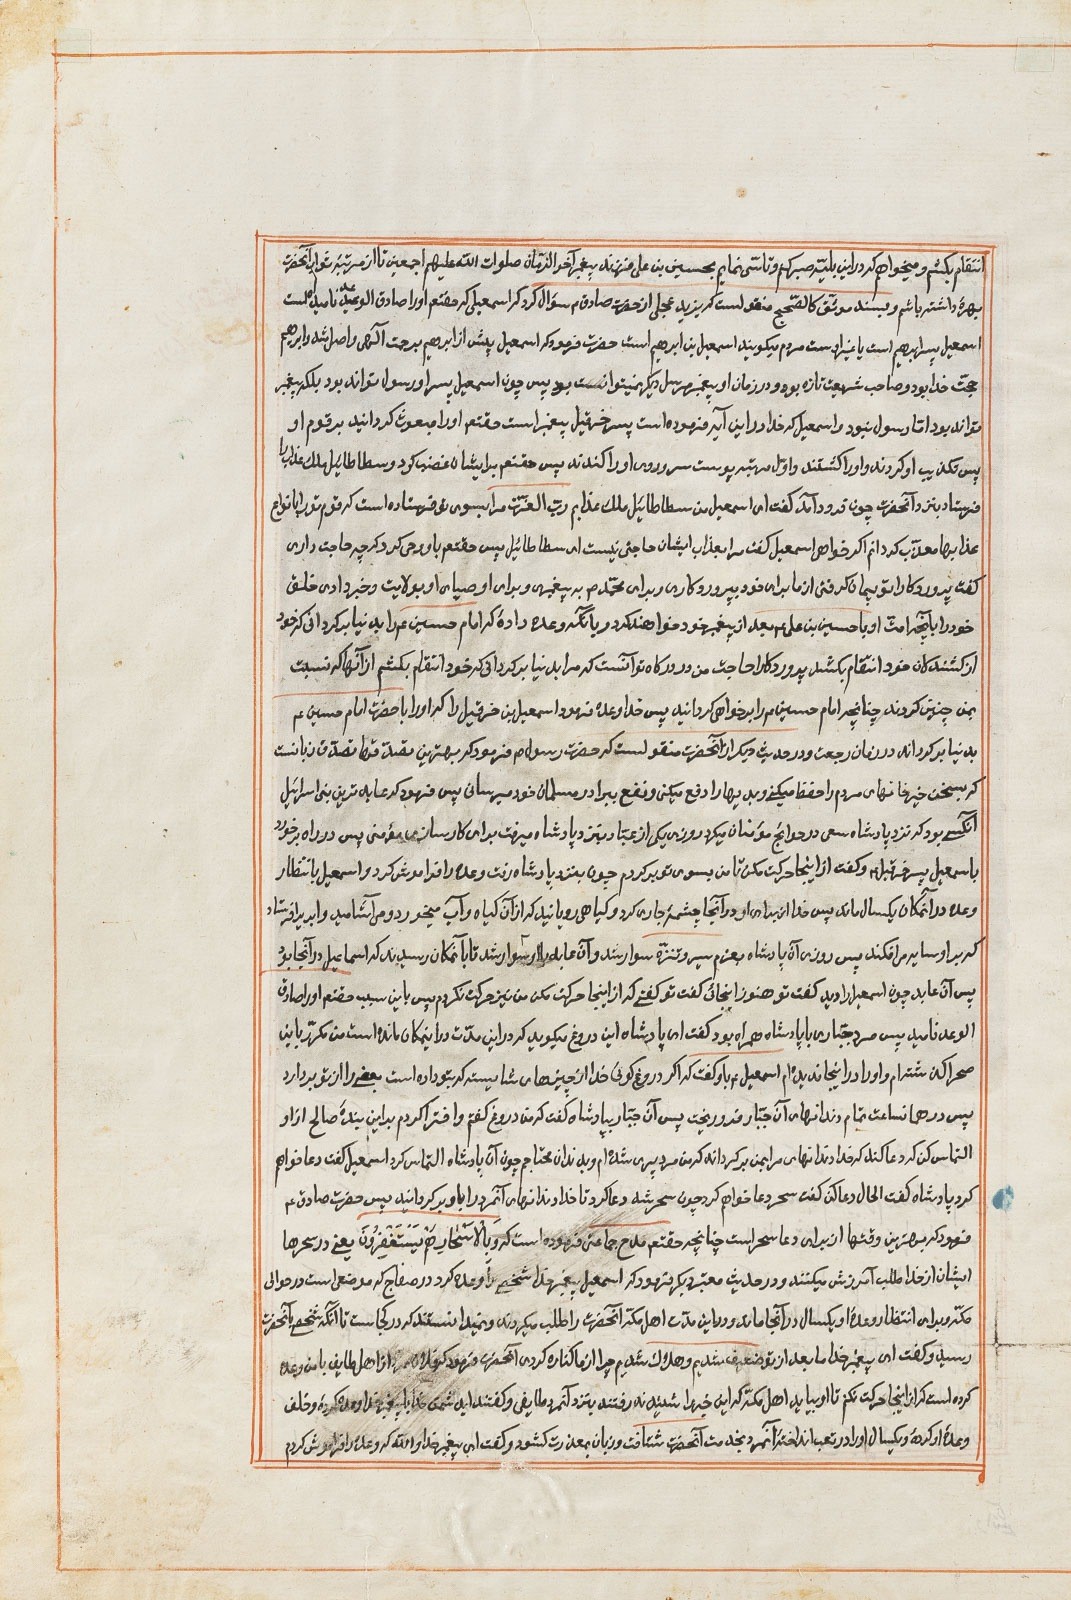 انتقام بکشم و میخواهم که در این بلیّه صبر کنم و تاسّی نمایم بحسین بن علی فرزند پیغمبر آخر الزمان صلوات الله علیهم اجمعین تا از مرتبهٔ ثواب آنحضرت
بهرهٔ داشته باشم و بسند موثق کالصّحیح منقولست که برید عجلی از حضرت صادق م سؤال کرد که اسمعیلی که حقتعم او را صادق الوعد نامیده است
اسمعیل پسر ابرهیم است یا غیر اوست مردم میکویند اسمعیل بن ابرهیم است حضرت فرمود که اسمعیل پیش از ابرهیم برحمت آلهی واصل شد و ابرهیم
حجّت خدا بود و صاحب شریعت تازه بود و در زمان او پیغمبر مرسل دیکر نمیتوانست بود پس چون اسمعیل پسر او رسول تواند بود بلکه پیغمبر
تواند بود امّا رسول نبود و اسمعیل که خدا در این آیه فرموده است پسر خرقیل پیغمبر است حقتعم او را مبعوث کردانید بر قوم او
پس تکذیب او کردند و او را کشتند و اوّل مرتبه پوست سر و روی او را کندند پس حقتعم بر ایشان غضب کرد و سطاطائیل ملک عذاب را
فرستاد بنزد آنحضرت چون فرود آمد کفت ای اسمعیل من سطاطائیل ملک عذابم ربّ العزّت مرا بسوی تو فرستاده است که قوم تو را بانواع
عذابها معذّب کردانم اکر خواهی اسمعیل کفت مرا بعذاب ایشان حاجتی نیست ای سطاطائیل پس حقتعم باو وحی کرد که چه حاجت داری
کفت پروردکارا تو پیمان کرفتی از ما برای خود بپروردکاری و برای محمّد م به پیغمبری و برای اوصیای او بولایت و خبر دادی خلق
خود را بآنچه امّت او با حسین بن علی م بعد از پیغمبر خود خواهند کرد و بآنکه وعده دادهٔ که امام حسین م را بدنیا بر کردانی که خود
از کشندکان خود انتقام بکشد پروردکارا حاجت من در درکاه تو آنست که مرا بدنیا بر کردانی که خود انتقام بکشم از آنها که نسبت
بمن چنین کردند چنانچه امام حسین م را بر خواهی کردانید پس خدا وعده فرمود اسمعیل بن خرقیل را که او را با حضرت امام حسین م
بدنیا بر کرداند در زمان رجعت و در حدیث دیکر از آنحضرت منقولست که حضرت رسول م فرمود که بهترین تصدقها تصدّق زبانست
که بسخن خیر خانهای مردم را حفظ میکنی و بدیها را دفع میکنی و نفع ببرادر مسلمان خود میرسانی پس فرمود که عابدترین بنی اسرائیل
آنکسی بود که نزد پادشاه سعی در حوائج مؤمنان میکرد روزی یکی از عبّاد بنزد پادشاه میرفت برای کارسازی مؤمنی پس در راه برخورد
با اسمعیل پسر خرقیل م و کفت از اینجا حرکت مکن تا من بسوی تو بر کردم چون بنزد پادشاه رفت وعده را فراموش کرد و اسمعیل بانتظار
وعده در آنمکان یکسال ماند پس خدا از برای او در آنجا چشمهٔ جاری کرد و کیاهی رویانید که از آن کیاه و آب میخورد و می آشامید و ابری فرستاد
که بر او سایه می افکند پس روزی آن پادشاه بعزم سیر و تنزّه سوار شد و آن عابد با او سوار شد تا بآنمکان رسیدند که اسماعیل در آنجا بود
پس آن عابد چون اسمعیل را دید کفت تو هنوز اینجائی کفت تو کفتی که از اینجا حرکت مکن من نیز حرکت نکردم پس باین سبب حقتعم او را صادق
الوعد نامید پس مرد جبّاری با پادشاه همراه بود کفت ای پادشاه این دروغ میکوید که در این مدّت در اینمکان مانده است من مکرّر باین
صحرا کذشته ام و او را در اینجا ندیده ام اسمعیل م باو کفت که اکر دروغ کوئی خدا از چیزهای شایسته که بتو داده است بعضی را از تو بردارد
پس در همانساعت تمام دندانهای آن جبّار فرو ریخت پس آن جبّار بپادشاه کفت که من دروغ کفتم و افترا کردم بر این بندهٔ صالح از او
التماس کن که دعا کند که خدا دندانهای مرا بمن بر کرداند که من مرد پیری شده ام و بدندان محتاجم چون آن پادشاه التماس کرد اسمعیل کفت دعا خواهم
کرد پادشاه کفت الحال دعا کن کفت سحر دعا خواهم کرد چون سحر شد دعا کرد تا خدا دندانهای آنمرد را باو بر کردانید پس حضرت صادق م
فرمود که بهترین وقتها از برای دعا سحر است چنانچه حقتعم مدح جماعتی فرموده است که وَبِالْأَسْحَارِ هُمْ یَسْتَغْفِرُونَ یعنی در سحرها
ایشان از خدا طلب آمرزش میکنند و در حدیث معتبر دیکر فرمود که اسمعیل پیغمبر خدا شخصی را وعده کرد در صفاح که موضعی است در حوالی
مکّه و برای انتظار وعدهٔ او یکسال در آنجا ماند و در این مدّت اهل مکّه آنحضرت را طلب میکردند و نمیدانستند که در کجاست تا آنکه شخصی بآنحضرت
رسید و کفت ای پیغمبر خدا ما بعد از تو ضعیف شدیم و هلاک شدیم چرا از ما کناره کردی آنحضرت فرمود که فلان مرد از اهل طایف با من وعده
کرده است که از اینجا حرکت نکنم تا او بیاید اهل مکّه که این خبر را شنیدند رفتند بنزد آنمرد طایفی و کفتند ای دشمن خدا با پیغمبر خدا وعده کردهٔ و خلف
وعدهٔ او کردهٔ و یکسال او را در تعب انداختهٔ آنمرد بخدمت آنحضرت شتافت و زبان بمعذرت کشود و کفت ای پیغمبر خدا و الله که وعده را فراموش کردم